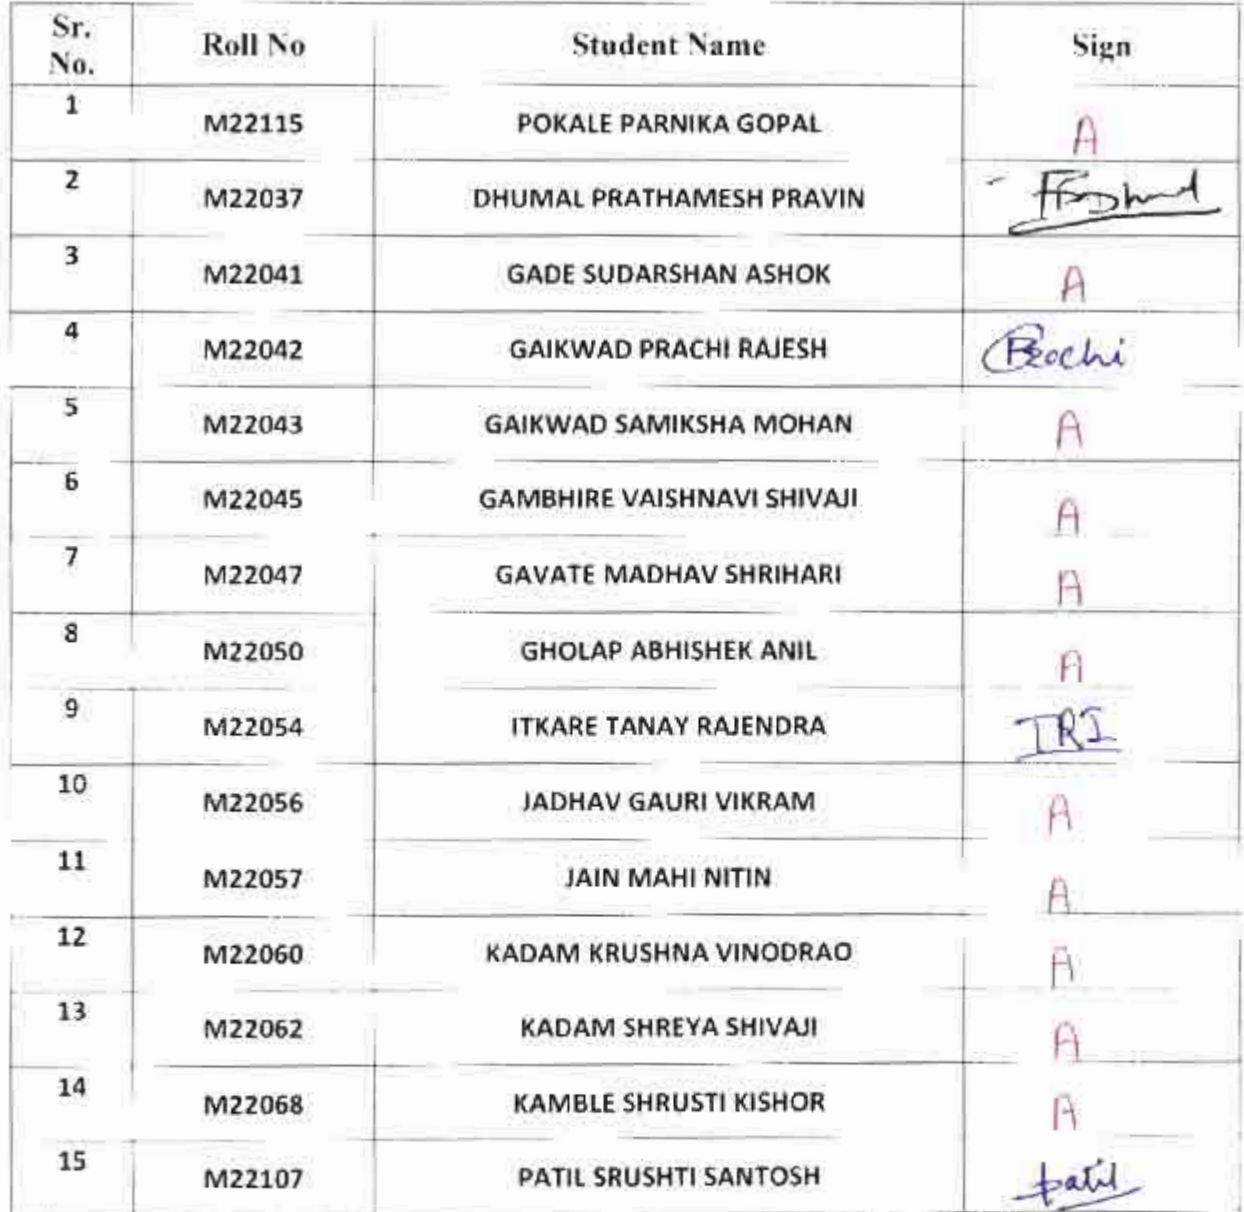 Sr. No. Roll No Student Name Sign
1 M22115 POKALE PARNIKA GOPAL A
2 M22037 DHUMAL PRATHAMESH PRAVIN
3 M22041 GADE SUDARSHAN ASHOK A
4 M22042 GAIKWAD PRACHI RAJESH Prachi
5 M22043 GAIKWAD SAMIKSHA MOHAN A
6 M22045 GAMBHIRE VAISHNAVI SHIVAJI A
7 M22047 GAVATE MADHAV SHRIHARI A
8 M22050 GHOLAP ABHISHEK ANIL A
9 M22054 ITKARE TANAY RAJENDRA TRI
10 M22056 JADHAV GAURI VIKRAM A
11 M22057 JAIN MAHI NITIN A
12 M22060 KADAM KRUSHNA VINODRAO A
13 M22062 KADAM SHREYA SHIVAJI A
14 M22068 KAMBLE SHRUSTI KISHOR A
15 M22107 PATIL SRUSHTI SANTOSH patil